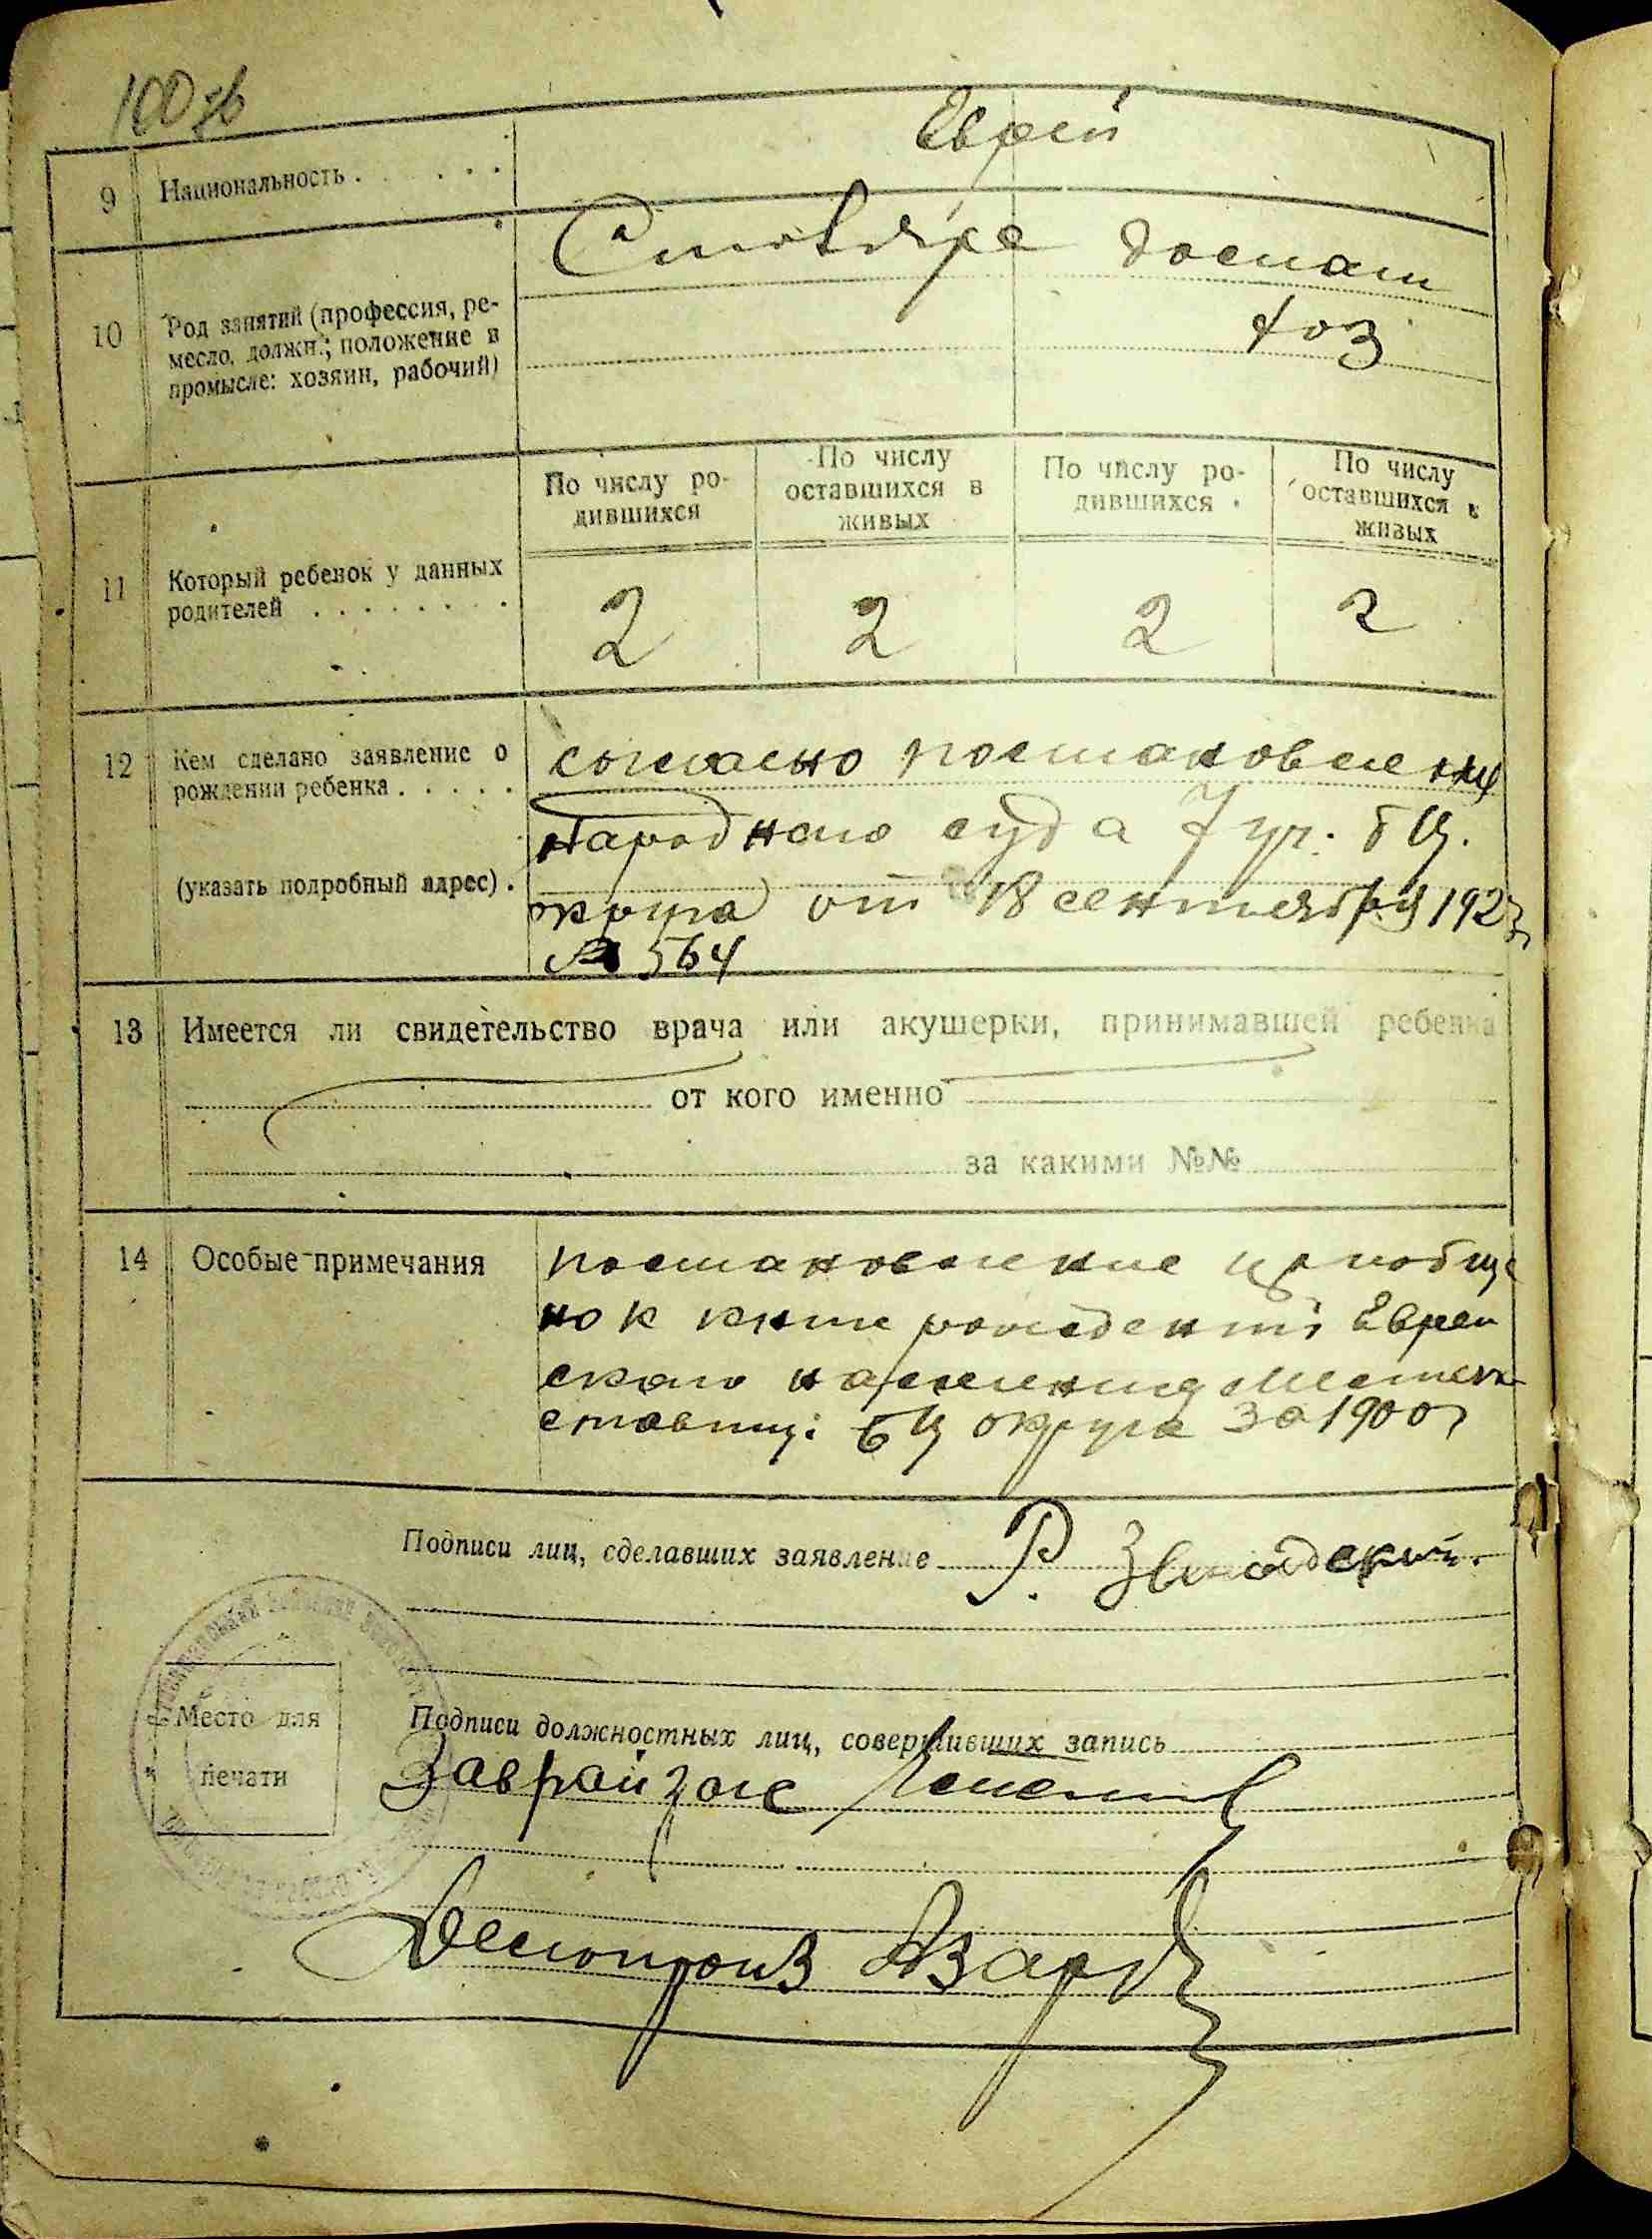 100 об
Еврей
9 Национальность . . . . . .
Столяре домаш
хоз
10 Род занятий (профессия, ре-
месло, должн.; положение в
промысле: хозяин, рабочий)
По числу ро-
дившихся
По числу
оставшихся в
живых
По числу ро-
дившихся
По числу
оставшихся в
живых
11 Который ребенок у данных
родителей . . . . . . . .
2 2 2 2
12 Кем сделано заявление о
рождении ребенка . . . . .
(указать подробный адрес) .
согласно постановления
Народного суда 7 уч. БЦ.
округа от 18 сентября 1923
№ 564
13 Имеется ли свидетельство врача или акушерки, принимавшей ребенка
от кого именно
за какими №№
14 Особые примечания
постановление приобще
но к книге рождений Еврей
ского населения
БЦ округа за 1900 г
Подписи лиц, сделавших заявление Р.
Место для
печати
Подписи должностных лиц, совершивших запись
Заврайзагс
Делопроиз